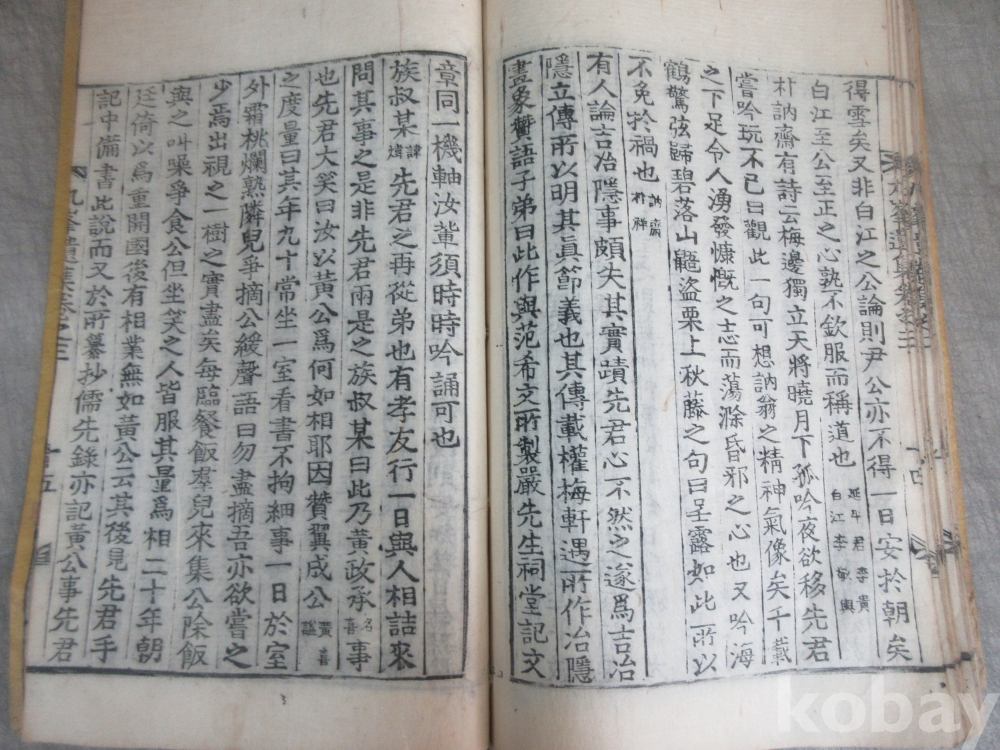 得雪矣又非白江之公論則尹公亦不得一日安於朝矣
白江至公至正之心孰不欽服而稱道也 延平君李貴 白江李敬輿
朴訥齋有詩云梅邊獨立天將曉月下孤吟夜欲移先君
嘗吟玩不已曰觀此一句可想訥翁之精神氣像矣千載
之下足令人湧發慷慨之志而蕩滌昏邪之心也又吟海
鶴驚弦歸碧落山鼯盜栗上秋藤之句曰呈露如此所以
不免於禍也 訥齋朴祥
有人論吉冶隱事頗失其實蹟先君心不然之遂爲吉冶
隱立傳所以明其眞節義也其傳載權梅軒遇所作冶隱
畫象贊語子弟曰此作與范希文所製嚴先生祠堂記文
章同一機軸汝輩須時時吟誦可也
族叔某 諱 先君之再從弟也有孝友行一日與人相詰來
問其事之是非先君兩是之族叔某曰此乃黃政承 名喜 事
也先君大笑曰汝以黃公爲何如相耶因贊翼成公 黃喜諡
之度量曰其年九十常坐一室看書不拘細事一日於室
外霜桃爛熟隣兒爭摘公緩聲語曰勿盡摘吾亦欲嘗之
少焉出視之一樹之實盡矣每臨餐飯羣兒來集公除飯
與之叫噪爭食公但坐笑之人皆服其量爲相二十年朝
廷倚以爲重開國後有相業無如黃公云其後見先君手
記中備書此說而又於所纂抄儒先錄亦記黃公事先君
九峯遺集卷之三
十五
十四
kobay